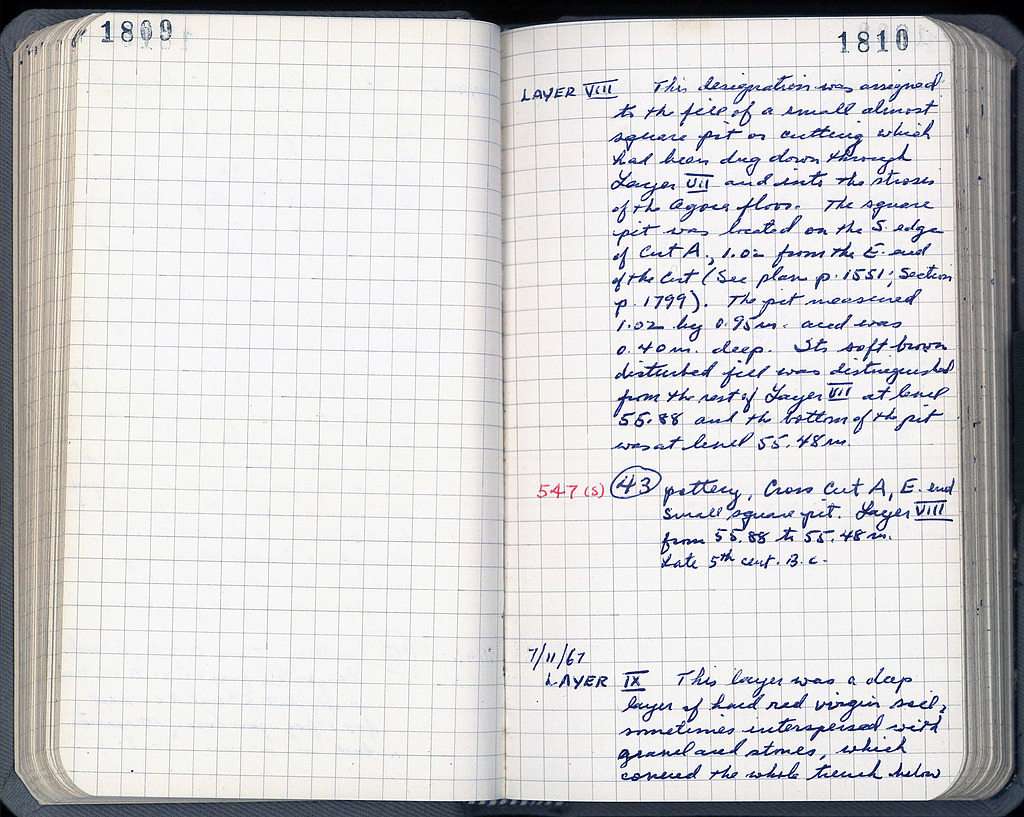 1809
1810
LAYER VIII This designation was assigned
to the fill of a small almost
square pit or cutting which
had been dug down through
Layer VII and into the stroses
of the Agora floor. The square
pit was located on the S. edge
of Cut A., 1.02 from the E. end
of the Cut (See plan p. 1551; Section
p. 1799). The pit measured
1.02 by 0.95 m. and was
0.40 m. deep. Its soft brown
disturbed fill was distinguished
from the rest of Layer VII at level
55.88 and the bottom of the pit
was at level 55.48 m
547 (S) 43 pottery, Cross Cut A, E. end
Small square pit. Layer VIII
from 55.88 to 55.48 m.
Late 5th cent. B.C.
7/11/67
LAYER IX This layer was a deep
layer of hard red virgin soil,
sometimes interspersed with
gravel and stones, which
covered the whole trench below